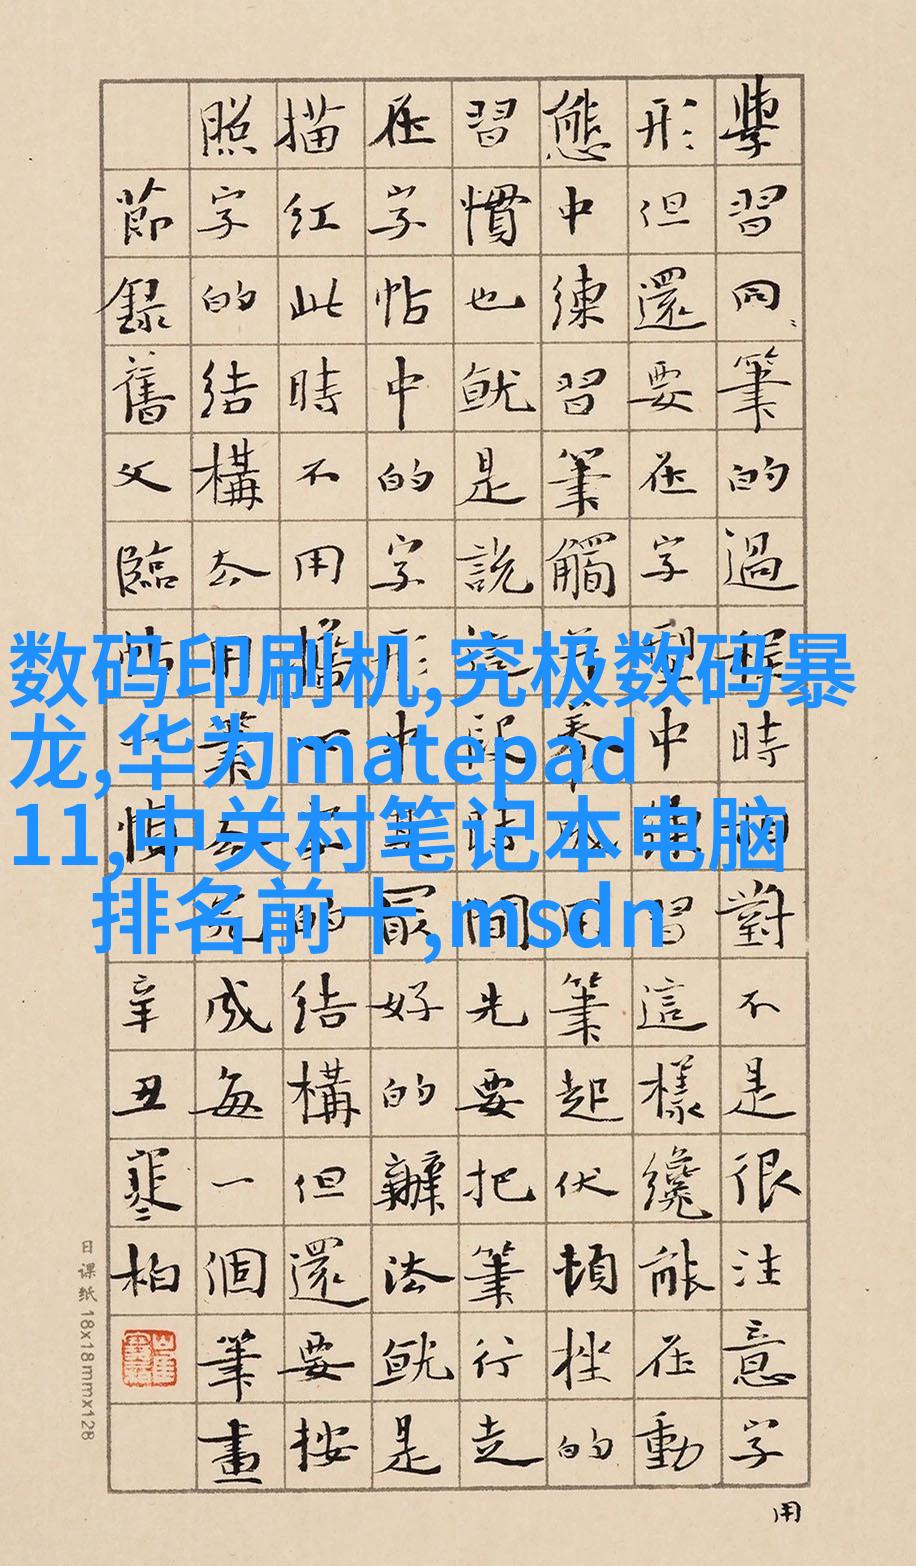 數码印刷机,究极数码暴
龙,华为matepad
11,中关村笔记本电脑
排名前十,msdn
學習同筆的過程時對不是很注意字
形但還要在字中練習這樣纔能在動
態中練習筆觸養成用筆起伏頓挫的
習慣也就是說這段時間先要把筆行走
在字帖中的字形中最好的辦法就是
描紅此時不用擔心的結構但還要按
照字的結構去用筆去完成每一個筆畫
節錄舊文臨帖
辛丑寒柏
用
日课纸 18x18mmx128